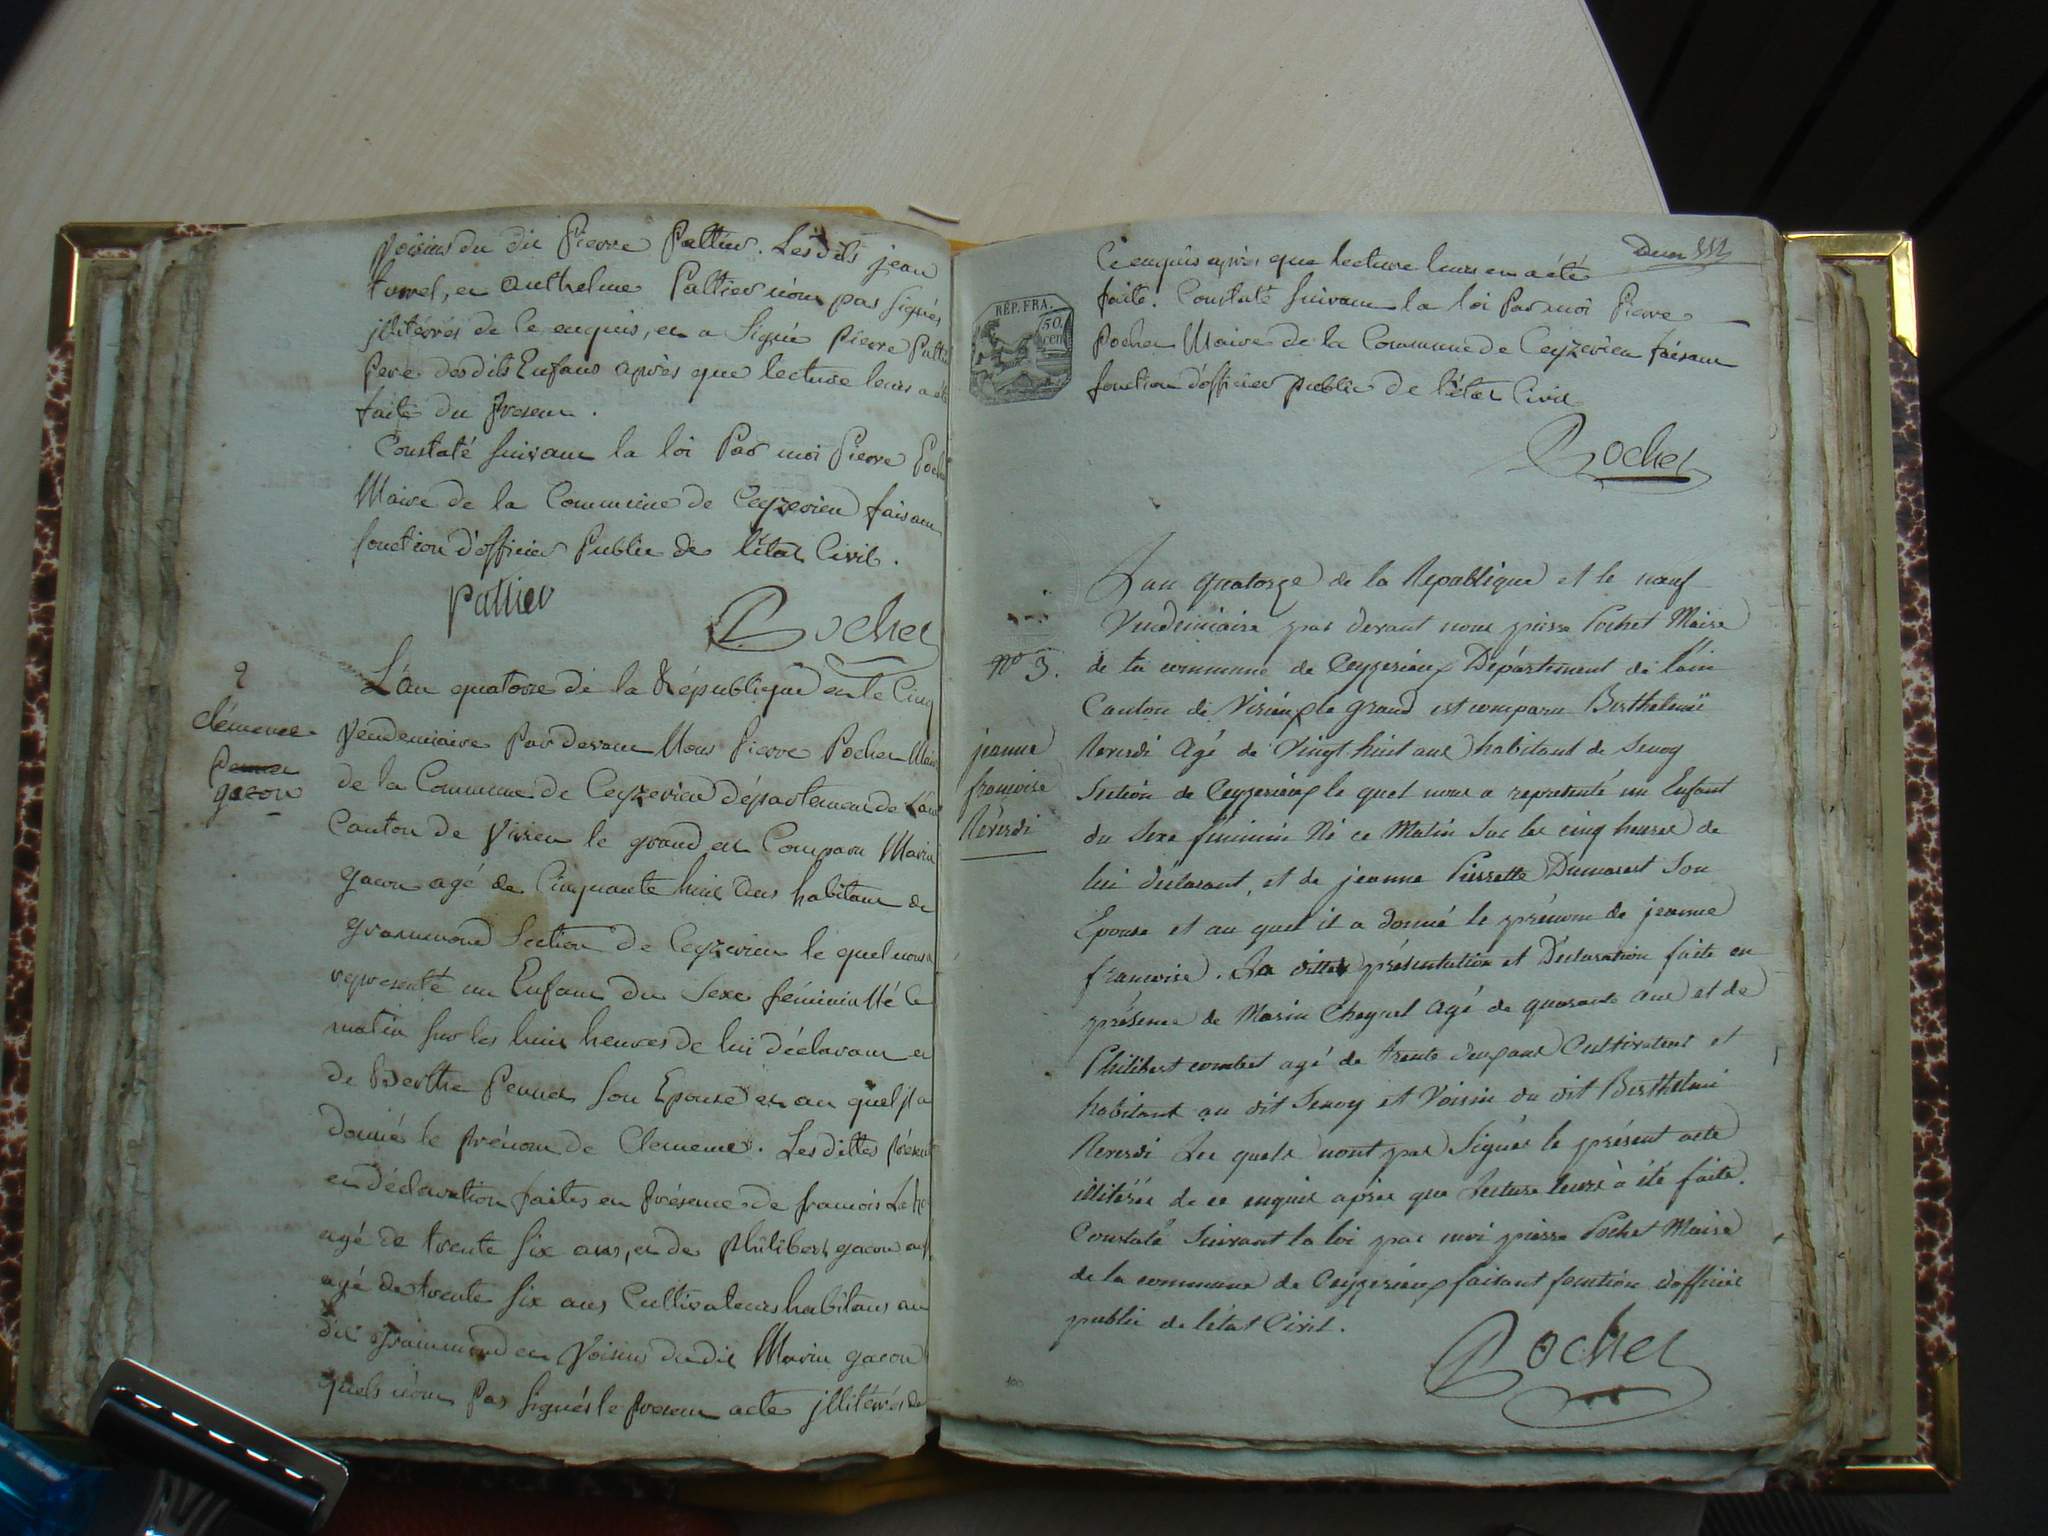 Voisins du dit Pierre Pattier. Les dits jean
et anthelme Pattier n'ont pas Signés
illitérés de Ce enquis, et a Signé pierre Patti
Pere des dits Enfans après que lecture leurs a été
faite du present.
Constaté Suivant la loi Par moi Pierre Poche
Maire de la Commune de Ceyzerieu faisant
fonction d'officier Public de l'état Civil.
Pattier
Pochet
2
clémence
gacon
L'an quatorze de la République et le Cinq
Vendemiaire Par devant Nous Pierre Pochet Mair
de la Commune de Ceyzerieu département de L'ain
Canton de Virieu le grand est Comparu Marin
gacon agé de Cinquante huit Ans habitant de
grammond Section de Ceyzerieu le quel nous a
representé un Enfant du Sexe féminin Né Ce
matin Sur les huit heures de lui déclarant et
de Berthe Pennet Son Epouse et au quel il a
donné le prénom de Clemence. Les dittes présent
et déclaration faites en Présence de francois
agé de trente Six ans, et de philibert gacon
agé de trente Six ans Cultivateurs habitans au
dit grammond et Voisins du dit Marin gacon
quels n'ont Pas Signés le present acte illitérés de
Deux
RÉP. FRA.
50
cen
Ce enquis après que lecture leurs en a été
faite. Constaté Suivant la loi Par moi Pierre
Pochet Maire de la Commune de Ceyzerieu faisant
fonction d'officier public de l'état Civil
Pochet
nº 3.
jeanne
francoise
Reverdi
L'an quatorze de la Republique et le neuf
Vendemiaire par devant nous pierre Pochet Maire
de la commune de Ceyzerieux Département de l'ain
Canton de Virieux le grand est comparu Berthelemi
Reverdi Agé de Vingt huit ans habitant de Senoy
Section de Ceyzerieux le quel nous a representé un Enfant
du Sexe féminin Né ce Matin Sur les cinq heures de
lui déclarant, et de jeanne Pierrette Dumarest Son
Epouse et au quel il a donné le prénom de jeanne
francoise. La ditte présentation et Déclaration faite en
présence de Marin Chaquet Agé de quarante ans et de
Philibert combet agé de trente deux ans Cultivateurs et
habitant au dit Senoy et Voisin du dit Berthelemi
Reverdi Les quels n'ont pas Signés le présent acte
illitérés de ce enquis après que Lecture leurs à été faite.
Constaté Suivant la loi par moi pierre Pochet Maire
de la commune de Ceyzerieux faisant fonction d'officier
public de l'état Civil.
Pochet